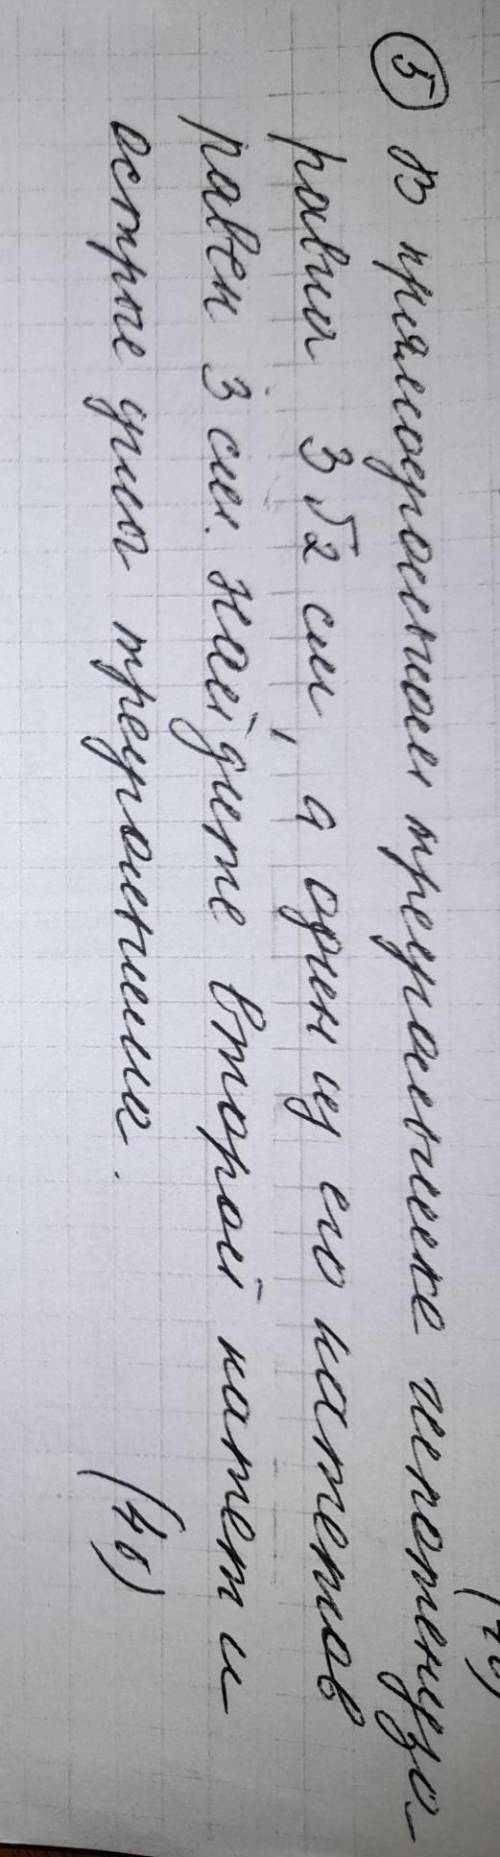 5 В прямоугольном треугольнике гипотенуза
равна 3√2 см, а один из его катетов
равен 3 см. Найдите второй катет и
острые углы треугольника. (4б)